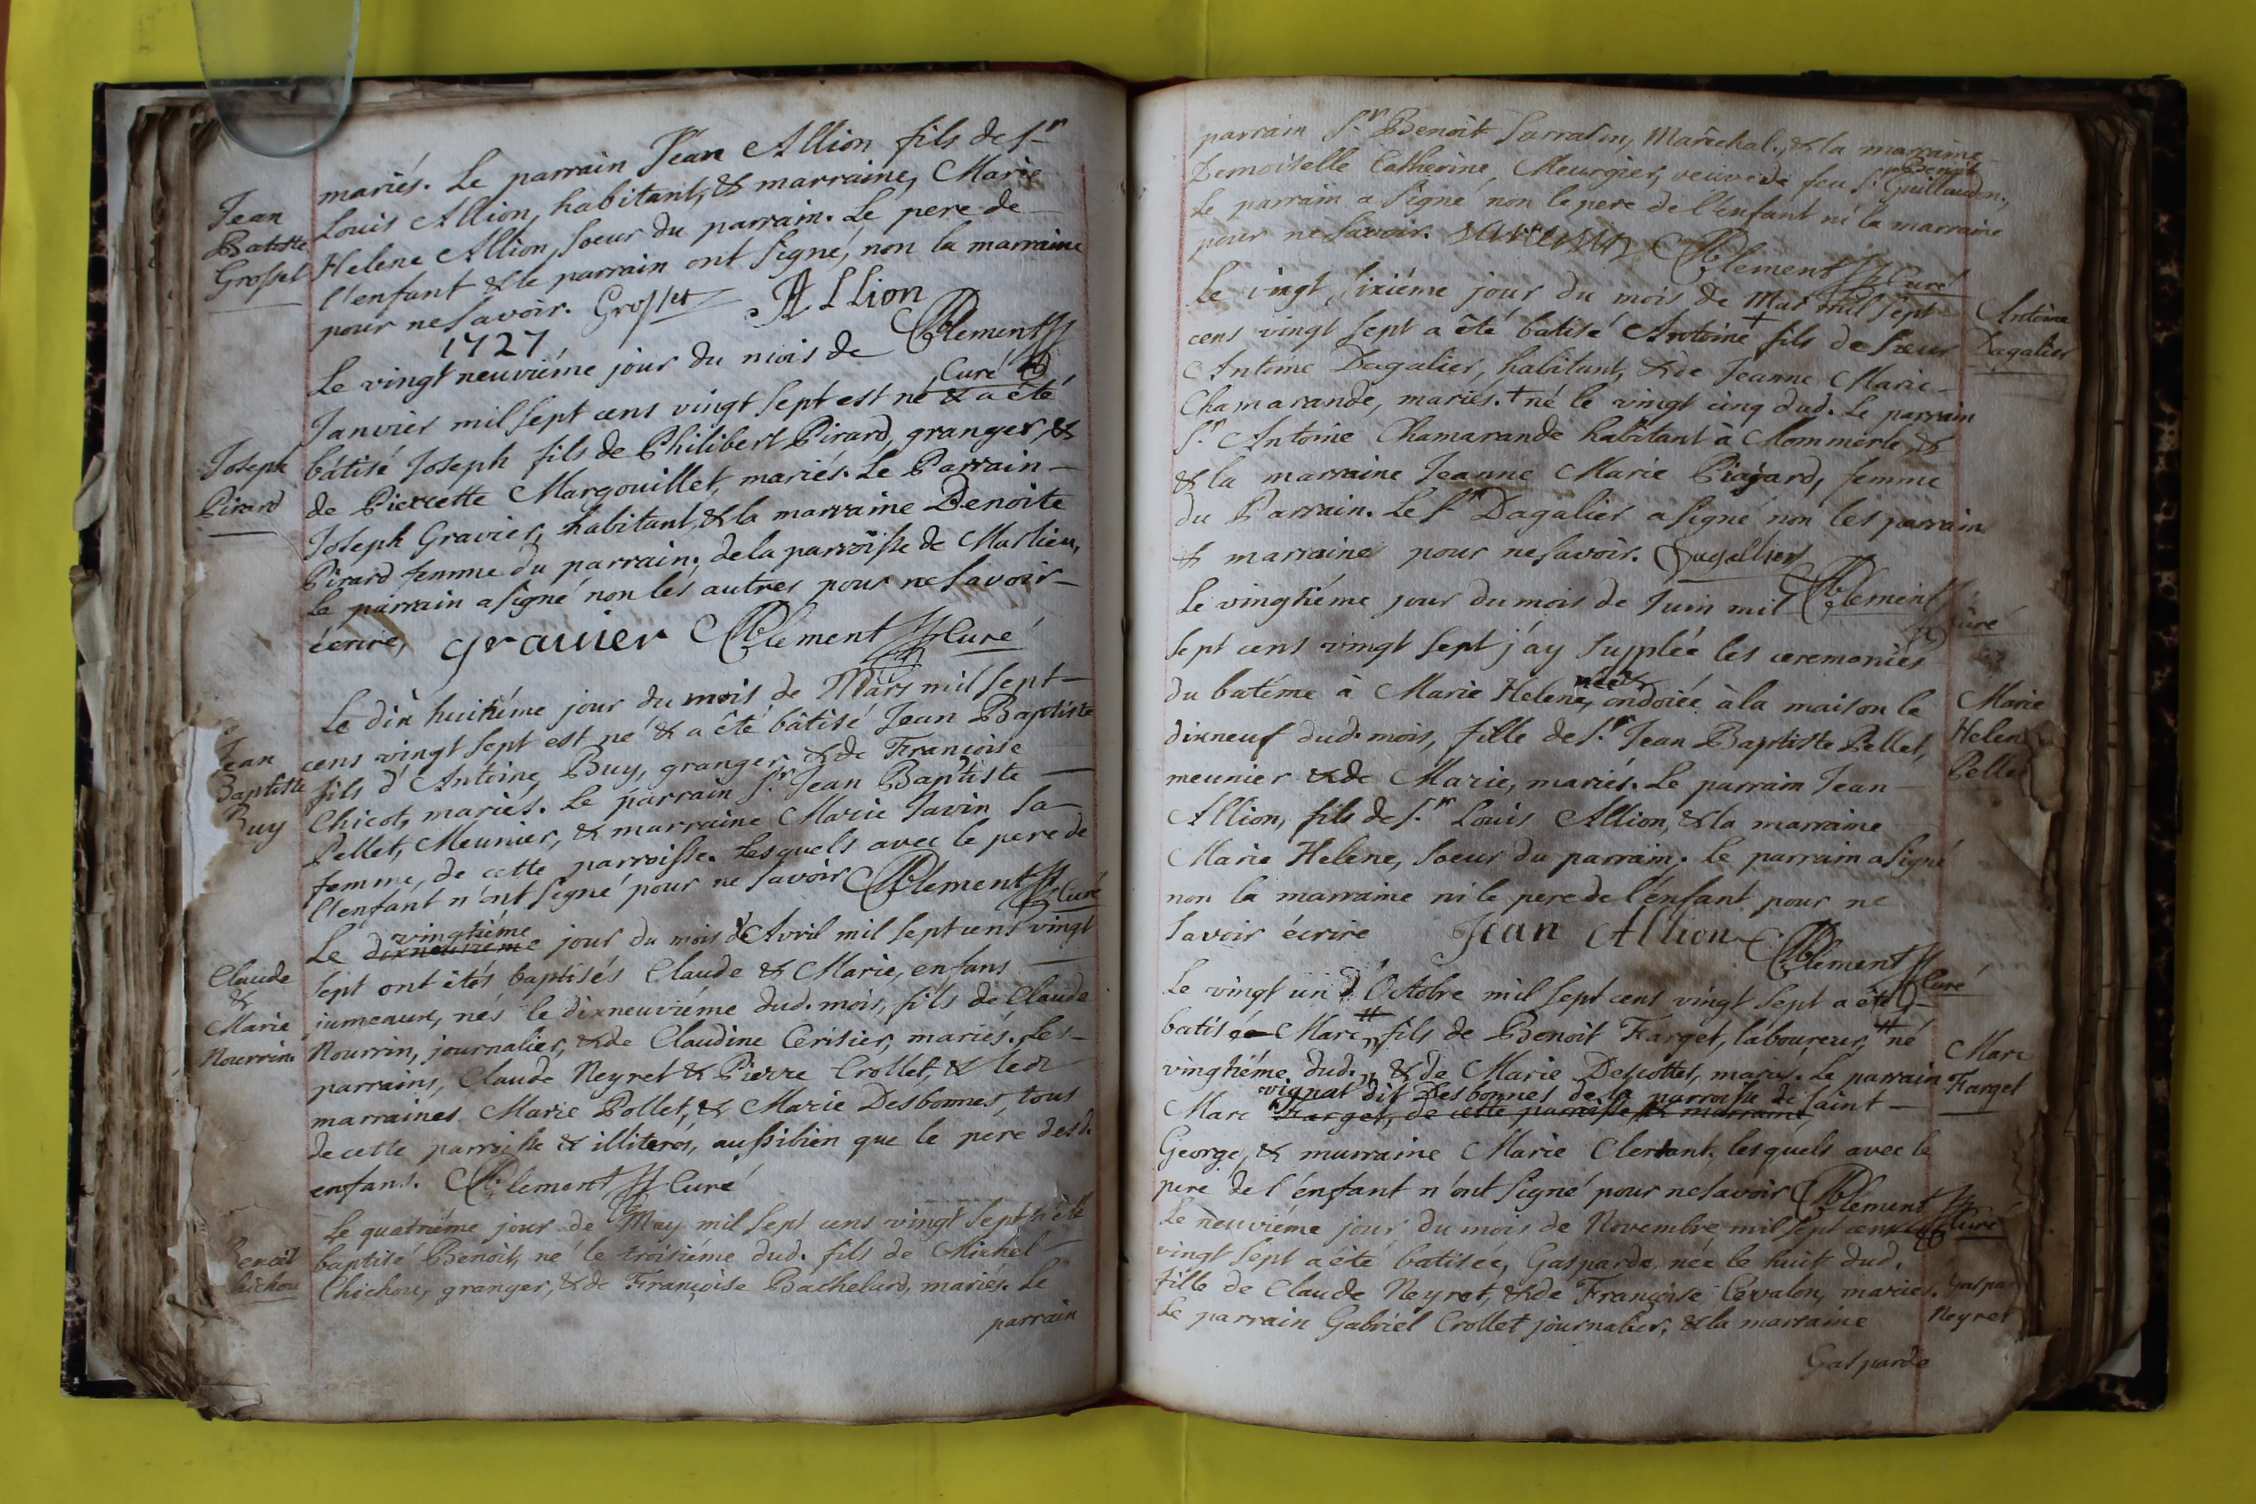 mariés. Le parrain Jean Allion fils de Sr
Jean
Louis Allion, habitant, & marraine, Marie
Batiste
Helene Allion, soeur du parrain. Le pere de
Grosset
l'enfant & le parrain ont signé, non la marraine
pour ne savoir. Grosset Allion
1727 Clement Curé
Le vingt neuviéme jour du mois de
Janvier mil sept cens vingt sept est né & a été
Joseph
Pirard
bâtisé Joseph fils de Philibert Pirard, granger, &
de Pierrette Margouillet, mariés. Le Parrain
Joseph Gravier, habitant, & la marraine Benoite
Pirard femme du parrain, de la parroisse de Marlieu,
Le parrain a signé non les autres pour ne savoir
écrire, gravier Clément Curé
Le dix huitiéme jour du mois de Mars mil sept
cens vingt sept est né & a été bâtisé Jean Baptiste
Jean
Baptiste
Buy
fils d'Antoine Buy, granger, & de Françoise
Chicot, mariés. Le parrain Sr. Jean Baptiste
Pellet, Meunier, & marraine Marie Javin sa
femme, de cette parroisse. Lesquels avec le pere de
l'enfant n'ont signé pour ne savoir Clement Curé
vingtiéme
Le dixneuvieme jour du mois d'Avril mil sept cens vingt
Claude
&
Marie
Nourrin
sept ont étés baptisés Claude & Marie, enfans
jumeaux, nés le dixneuviéme dud. mois, fils de Claude
Nourrin, journalier, & de Claudine Cerisier, mariés. Les
parrains, Claude Neyret & Pierre Crollet, & les
marraines Marie Pollet, & Marie Desbonnes, tous
de cette parroisse & illiterés, aussibien que le pére desd.
enfans. Clement Curé
Le quatriéme jour de May mil sept cens vingt sept a été
Benoit
Chichou
baptisé Benoit, né le troisiéme dud. fils de Michel
Chichou, granger, & de Françoise Bachelard, mariés. Le
parrain
parrain Sr. Benoit Sarrasin, Maréchal, & la marraine
Demoiselle Catherine Meurgier, veuve de feu Sr. Benoit Guillaudon,
Le parrain a signé non le pere de l'enfant ni la marraine
pour ne savoir. Clement Curé
Le vingt sixiéme jour du mois de Mai mil sept
cens vingt sept a été batisé Antoine fils de Sieur
Antoine
Dagalier
Antoine Dagalier, habitant, & de Jeanne Marie
Chamarande, mariés. + né le vingt cinq dud. Le parrain
Sr. Antoine Chamarande habitant à Mommerle, &
& la marraine Jeanne Marie Piajard, femme
du Parrain. Le Sr. Dagalier a signé non les parrain
& marraine pour ne savoir. Dagallier
Clement Curé
Le vingtiéme jour du mois de Juin mil
sept cens vingt sept j'ay supplée les ceremonies
du batême à Marie Helene, née & ondoiée à la maison le
Marie
Helene
Pellet
dixneuf dud. mois, fille de Sr. Jean Baptiste Pellet,
meunier & de Marie, mariés. Le parrain Jean
Allion, fils de Sr. Louis Allion, & la marraine
Marie Helene, soeur du parrain. Le parrain a signé
non la marraine ni le pere de l'enfant pour ne
savoir écrire Jean Allion
Clement Curé
Le vingt un d'Octobre mil sept cens vingt sept a été
batisé Marc fils de Benoit Farget, laboureur, né
Marc
Farget
vingtiéme dud. & de Marie Descottes, mariés. Le parrain
vignat dit Desbonnes de la parroisse de Saint
Marc Farget, de cette parroisse & marraine
George, & marraine Marie Clertant. lesquels avec le
pere de l'enfant n'ont signé pour ne savoir Clement Curé
Le neuviéme jour du mois de Novembre mil sept cens
vingt sept a été batisée, Gasparde, née le huit dud.
fille de Claude Neyret, & de Françoise Cevalon, mariés.
Gaspar
Neyret
Le parrain Gabriel Crollet journalier, & la marraine
Gasparde